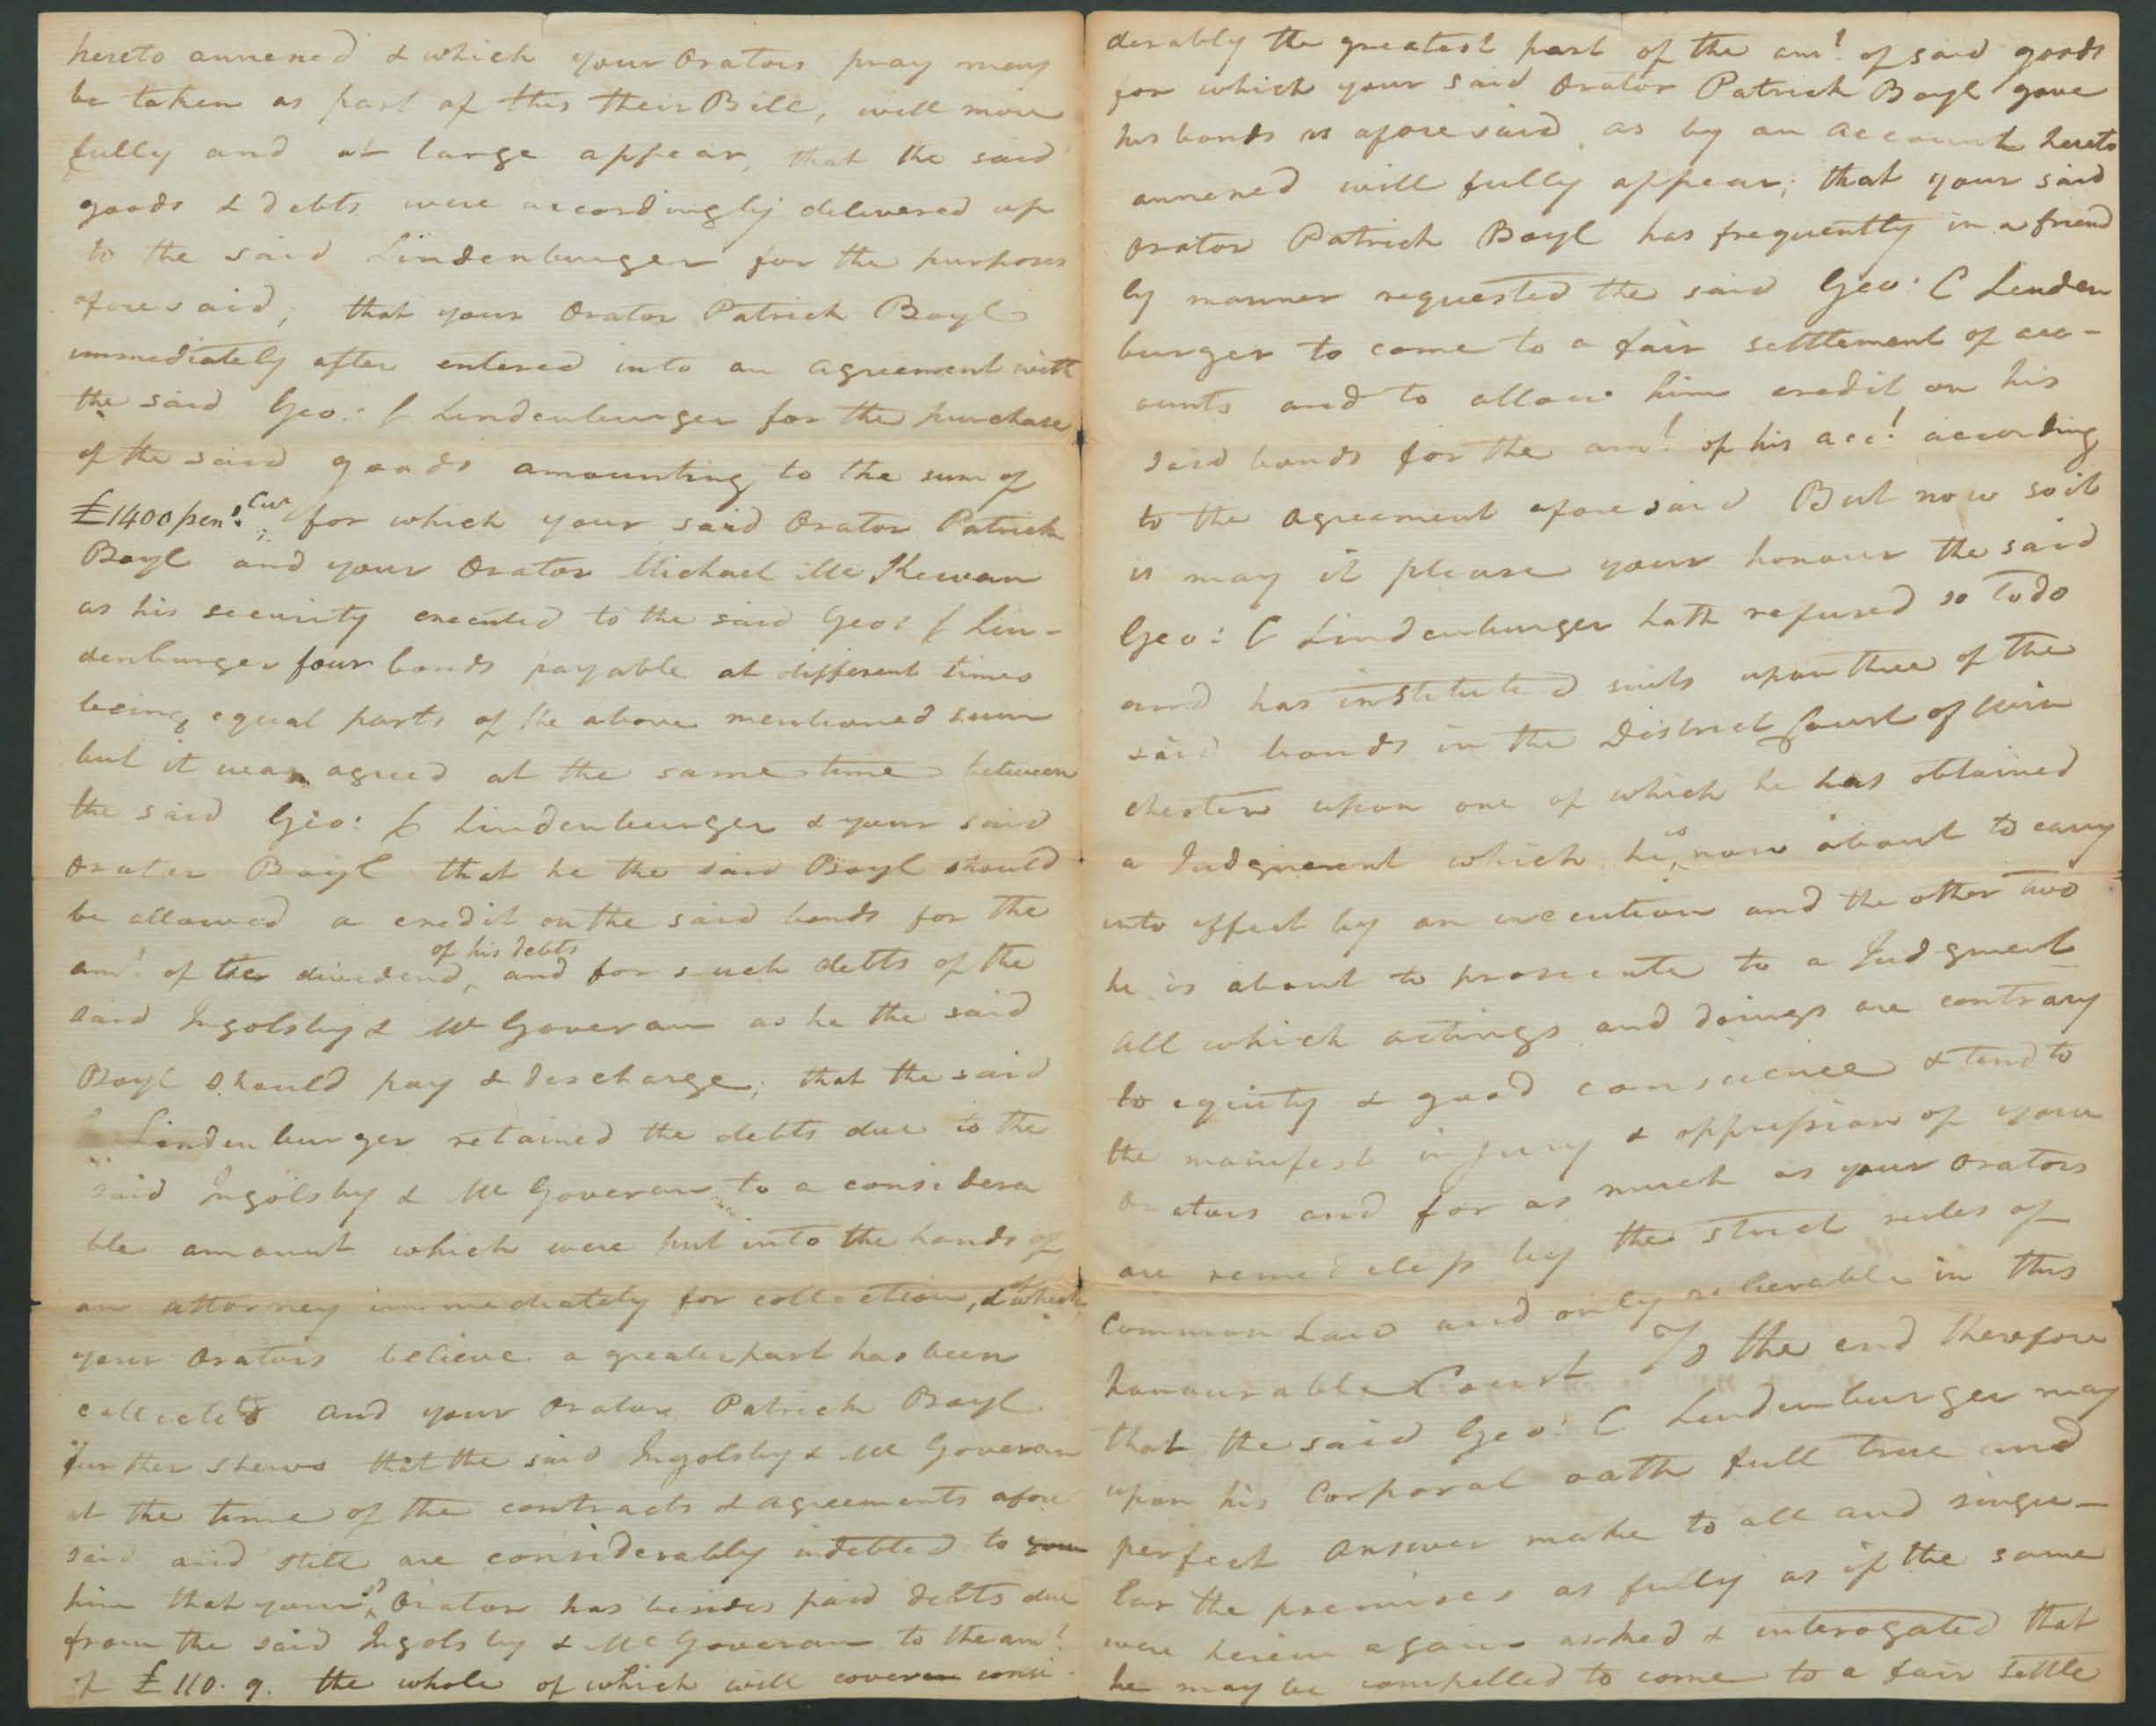 hereto annexed & which your Orators pray may
be taken as part of this their Bill, will more
fully and at large appear, that the said
goods & debts were accordingly delivered up
to the said Lindenburger for the purposes
aforesaid; that your Orator Patrick Boyl
immediately after entered into an agreement with
the said Geo: C Lindenburger for the purchase
of the said goods amounting to the sum of
£1400 pena: Cur for which your said Orator Patrick
Boyl and your Orator Michael McKewan
as his security executed to the said Geo: C Lin-
denburger four bonds payable at different times
being equal parts of the above mentioned sum
but it was agreed at the same time between
the said Geo: C Lindenburger & your said
Orator Boyl that he the said Boyl should
be allowed a credit on the said bonds for the
of his debts
amt. of the dividend, and for such debts of the
said Ingolsby & McGoveran as he the said
Boyl should pay & descharge; that the said
Lindenburger retained the debts due to the
said Ingolsby & McGoveran to a considera
ble amount which were put into the hands of
an attorney immediately for collection, & of which
your Orators believe a greater part has been
collected and your Orator Patrick Boyl
further shews that the said Ingolsby & McGoveran
at the time of the contracts & agreements afore
said and still are considerably indebted to your
him that your sd Orator has besides paid debts due
from the said Ingolsby & McGoveran to the amt.
of £110. 9. the whole of which will cover consi-
derably the greatest part of the amt. of said goods
for which your said Orator Patrick Boyl gave
his bonds as aforesaid as by an account hereto
annexed will fully appear; that your said
Orator Patrick Boyl has frequently in a friend
ly manner requested the said Geo: C Linden
burger to come to a fair settlement of acco-
unts and to allow him credit on his
said bonds for the amt. of his acct. according
to the agreement aforesaid But now so it
is may it please your honour the said
Geo: C Lindenburger hath refused so to do
and has instituted suits upon three of the
said bonds in the District Court of Win
chester upon one of which he has obtained
a Judgment which he is now about to carry
into effect by an execution and the other two
he is about to prosecute to a Judgment
all which actings and doings are contrary
to equity & good conscience & tend to
the manifest injury & oppression of your
Orators and for as much as your Orators
are remediless by the strict rules of
Common Law and only relievable in this
honourable Court To the end therefore
that the said Geo: C Lindenburger may
upon his Corporal oath full true and
perfect answer make to all and singu-
lar the premises as fully as if the same
were herein again asked & interogated that
he may be compelled to come to a fair settle